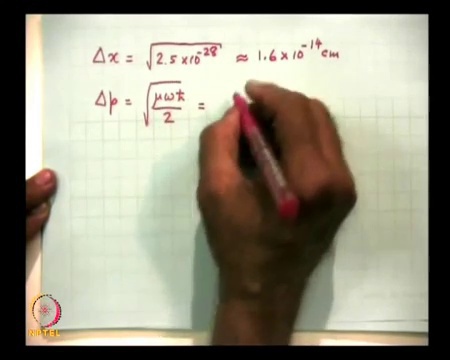 Δx = √2.5 x10⁻²⁸ ≈ 1.6 x 10⁻¹⁴ cm
Δp = √(μωħ/2) =
NPTEL